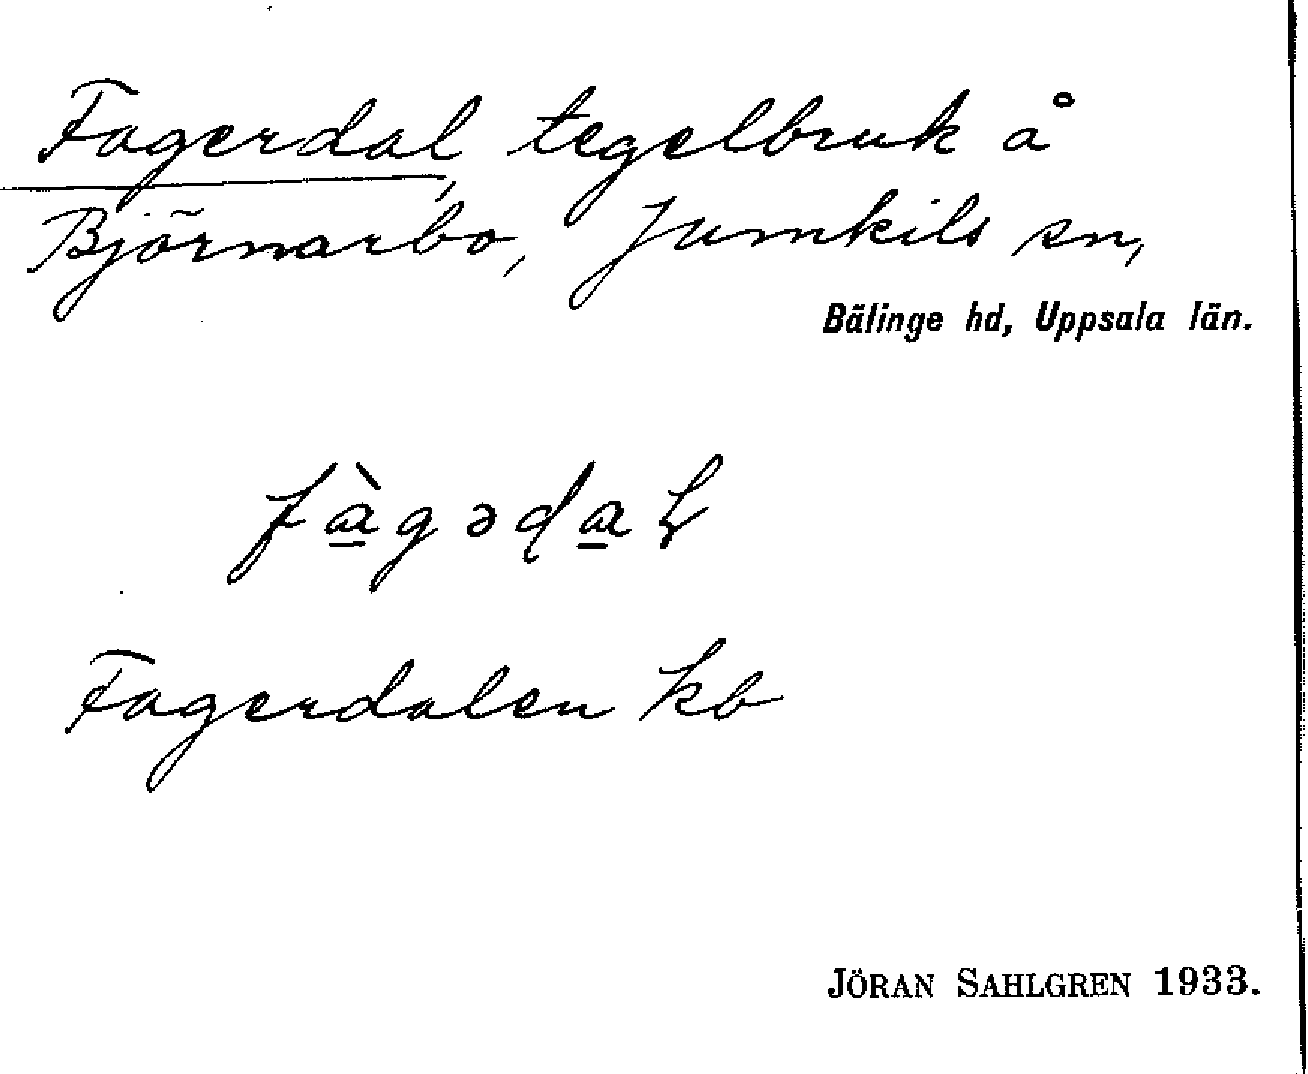 Fagerdal, tegelbruk å
Björnarbo, Jumkils sn,
Bälinge hd, Uppsala län.
Fagerdalen kb
JÖRAN SAHLGREN 1933.